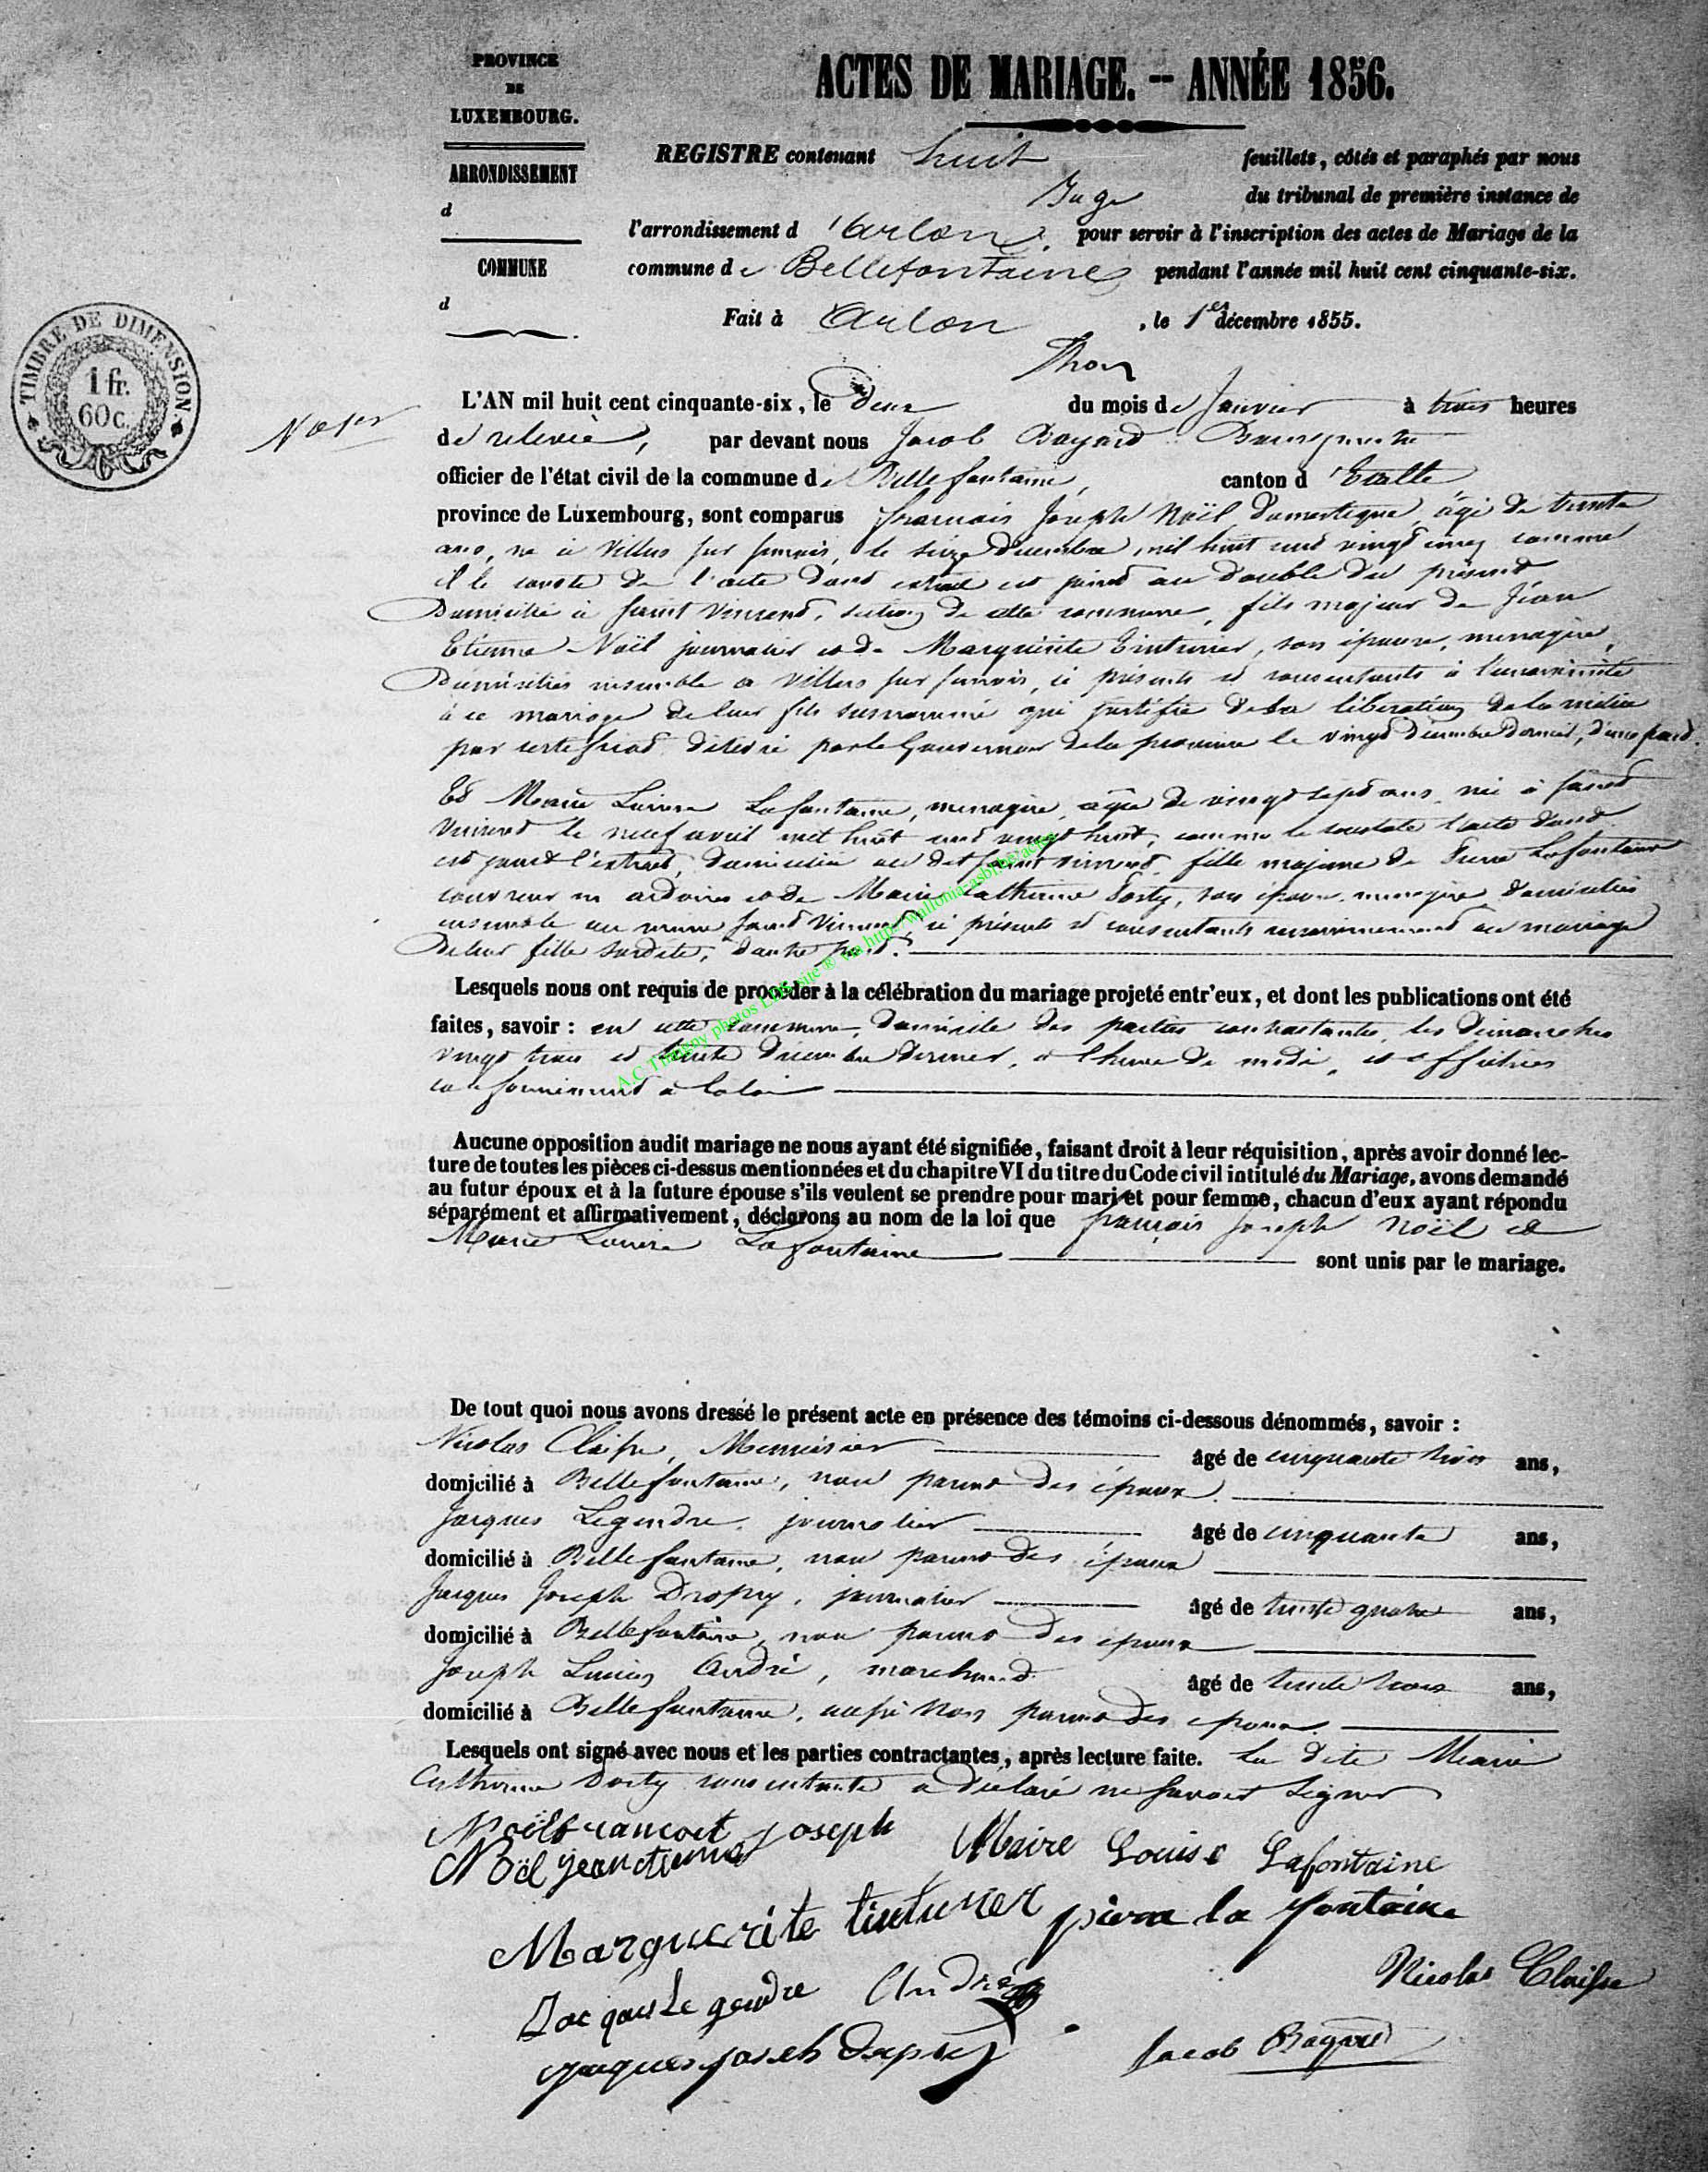 PROVINCE
DE
LUXEMBOURG.
ARRONDISSEMENT
d
COMMUNE
d
ACTES DE MARIAGE. — ANNÉE 1856.
REGISTRE contenant huit feuillets, côtés et paraphés par nous
Juge du tribunal de première instance de
l'arrondissement d'Arlon, pour servir à l'inscription des actes de Mariage de la
commune de Bellefontaine pendant l'année mil huit cent cinquante-six.
Fait à Arlon, le 1er décembre 1855.
Thon
TIMBRE DE DIMENSION
1 fr.
60 c.
L'AN mil huit cent cinquante-six, le deux du mois de Janvier à trois heures
de relevée, par devant nous Jacob Bayard Bourgmestre
officier de l'état civil de la commune de Bellefontaine, canton d'Etalle
province de Luxembourg, sont comparus françois Joseph Noël domestique, âgé de trente
ans, né à Villers sur semois, le seize décembre mil huit cent vingt cinq comme
il le conste de l'acte dont extrait est joint au double du présent
Domicilié à Saint Vincent, section de cette commune, fils majeur de Jean
Etienne Noël journalier et de Marguerite Tinturier, son épouse, menagère,
Domiciliés ensemble à Villers sur semois, ici présents et consentants à l'unanimité
à ce mariage de leur fils susnommé qui justifie de sa libération de la milice
par certificat délivré par le Gouverneur de la province le vingt décembre dernier, d'une part.
Et Marie Louise Lafontaine, menagère, agée de vingt sept ans, née à saint
Vincent le neuf avril mil huit cent vingt huit, comme le constate l'acte dont
est joint l'extrait, domiciliée au dit saint vincent, fille majeure de Pierre Lafontaine
couvreur en ardoises et de Marie Catherine Dosty, son épouse, menagère, domiciliés
ensemble au même saint Vincent ici présents et consentants unanimement au mariage
de leur fille susdite, d'autre part.
A.C Tintigny photos LDS site ® via http://wallonia-asbl.be/actes
Lesquels nous ont requis de procéder à la célébration du mariage projeté entr'eux, et dont les publications ont été
faites, savoir : en cette commune, domicile des parties contractantes, les dimanches
vingt trois et trente décembre dernier, à l'heure de midi, et affichées
conformément à la loi
Aucune opposition audit mariage ne nous ayant été signifiée, faisant droit à leur réquisition, après avoir donné lec-
ture de toutes les pièces ci-dessus mentionnées et du chapitre VI du titre du Code civil intitulé du Mariage, avons demandé
au futur époux et à la future épouse s'ils veulent se prendre pour mari et pour femme, chacun d'eux ayant répondu
séparément et affirmativement, déclarons au nom de la loi que françois Joseph Noël et
Marie Louise Lafontaine sont unis par le mariage.
De tout quoi nous avons dressé le présent acte en présence des témoins ci-dessous dénommés, savoir :
Nicolas Claisse, Menuisier âgé de cinquante trois ans,
domicilié à Bellefontaine, non parent des époux.
Jacques Legendre, journalier âgé de cinquante ans,
domicilié à Bellefontaine, non parent des époux
Jacques Joseph Dropsy, journalier âgé de trente quatre ans,
domicilié à Bellefontaine, non parent des époux
Joseph Lucien André, marchand âgé de trente trois ans,
domicilié à Bellefontaine, aussi non parent des époux.
Lesquels ont signé avec nous et les parties contractantes, après lecture faite. La dite Marie
Catherine Dosty consentante a déclaré ne savoir signer
Noël francoit joseph Marie Louise Lafontaine
Noël jean etienne
Marguerite tinturier piere la fontaine
Jacques Le gendre André Nicolas Claisse
jacques joseh Dropsy Jacob Bayard